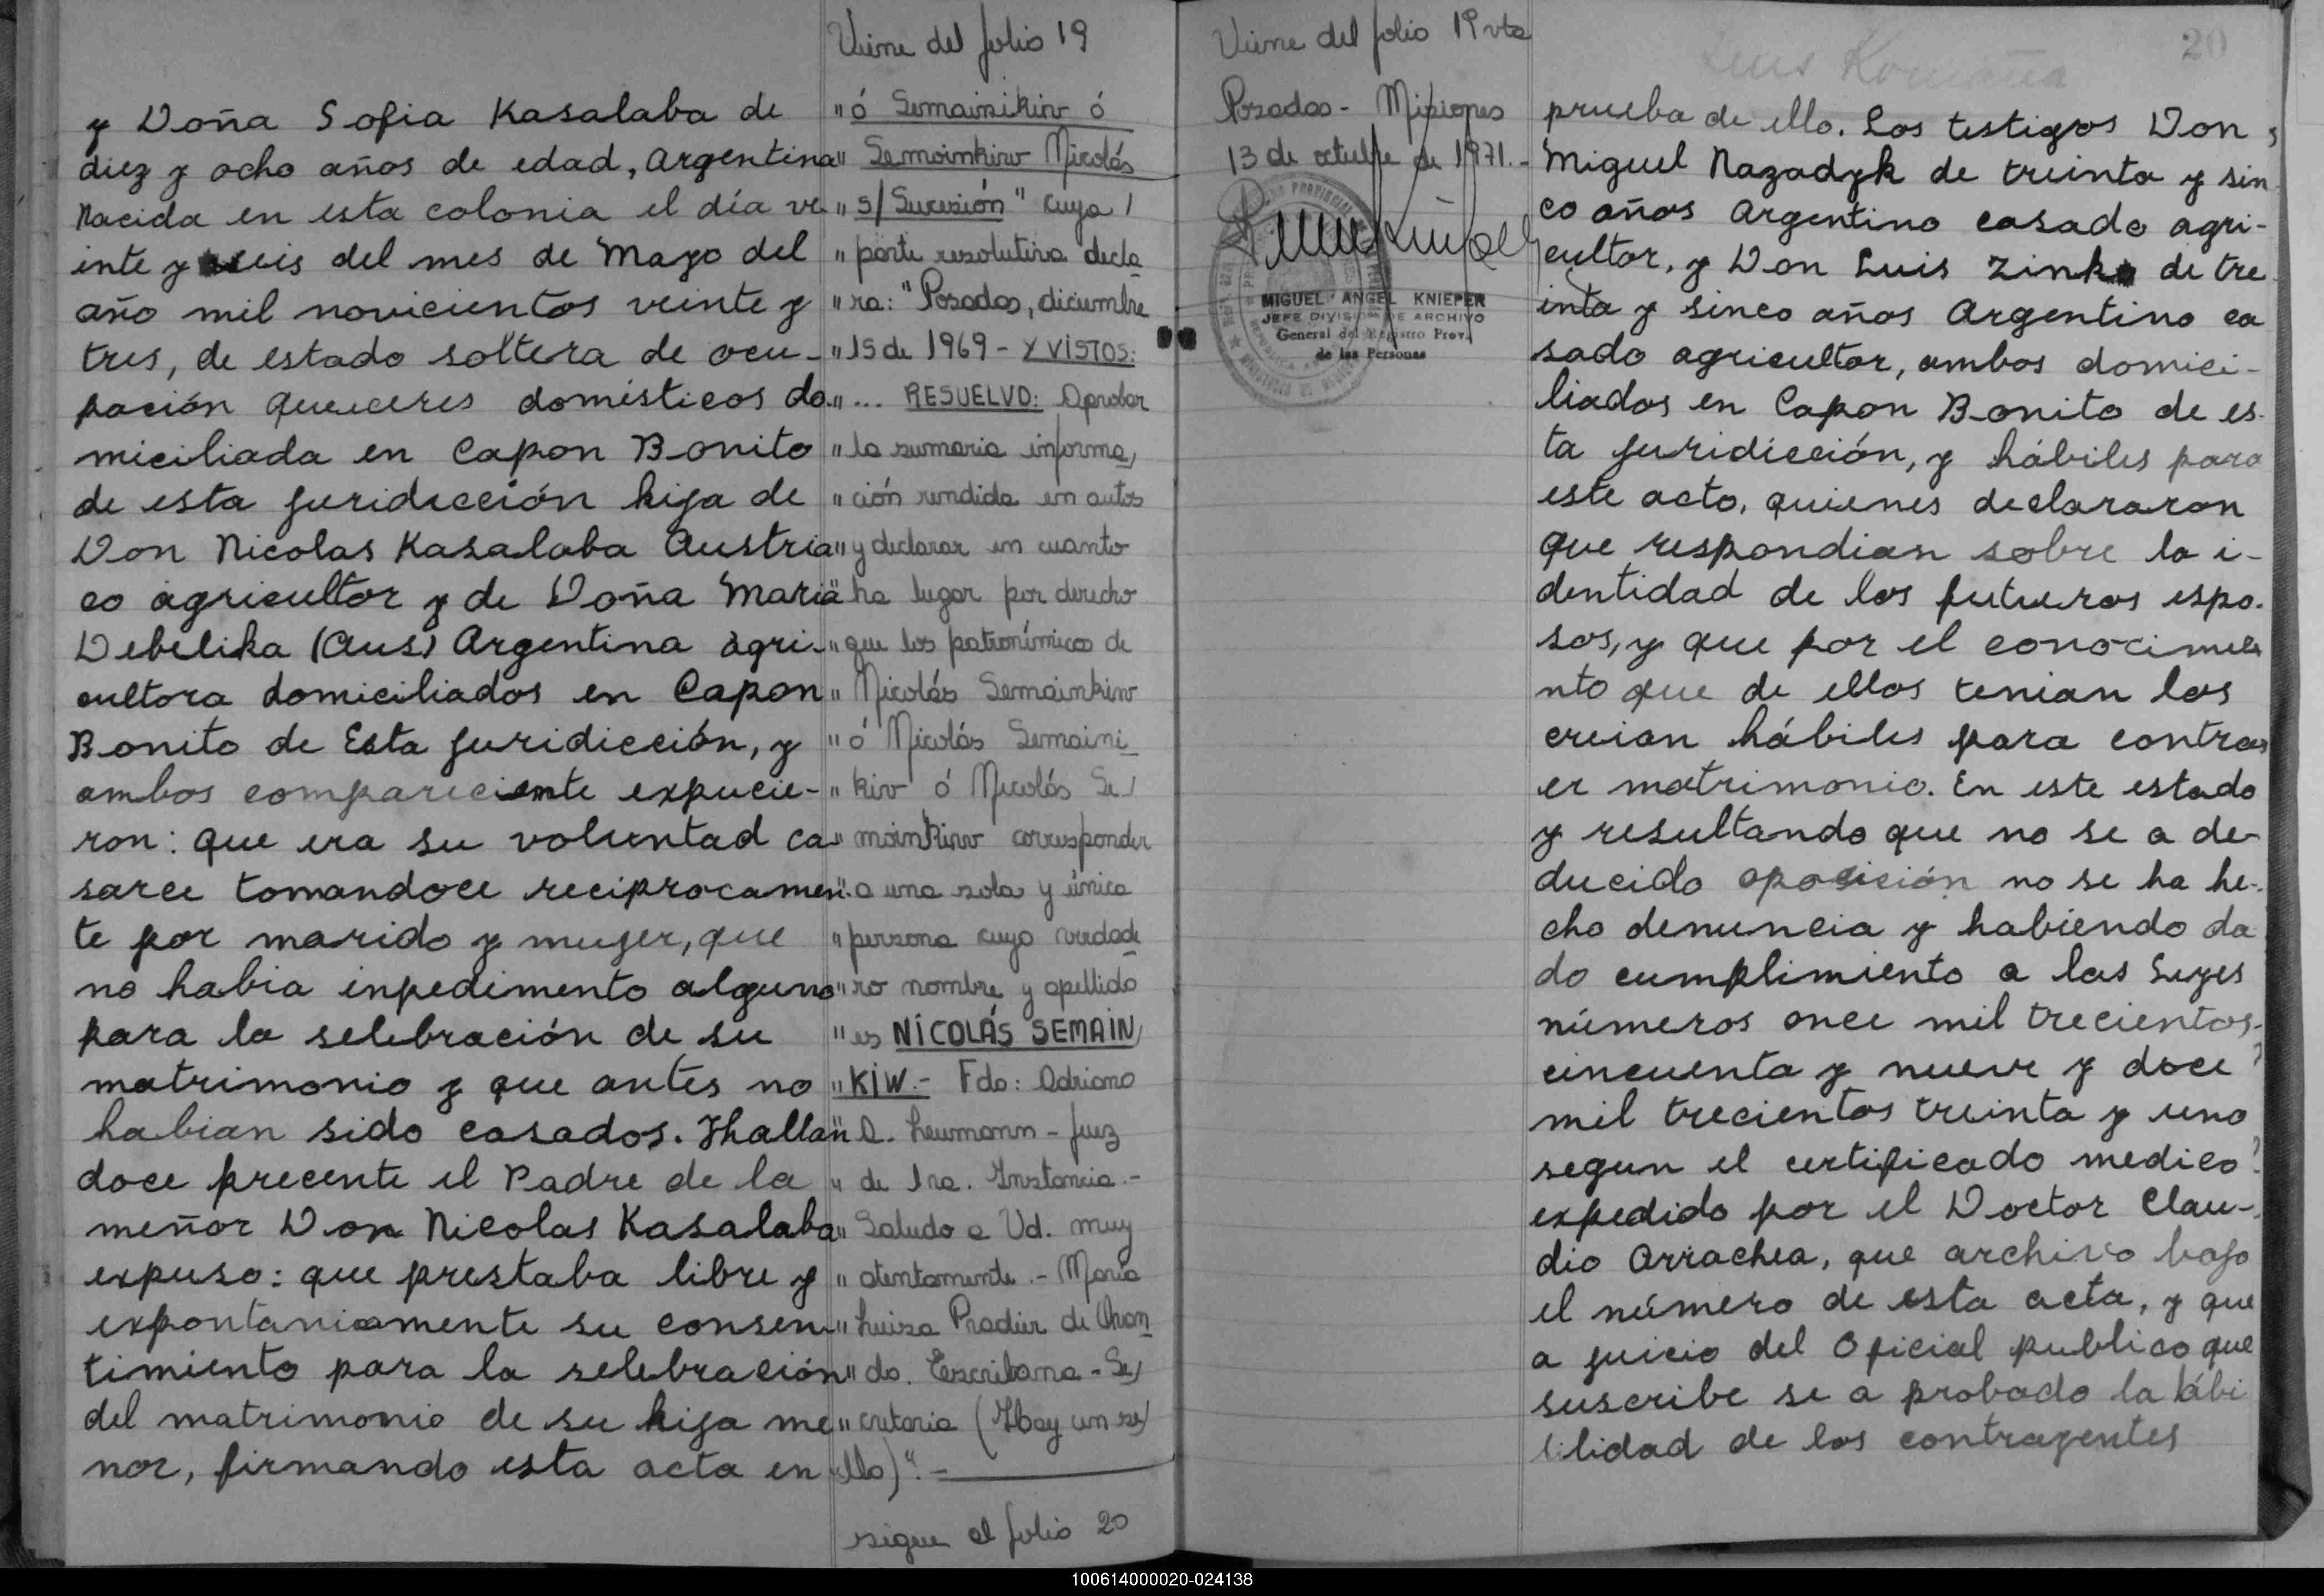 y Doña Sofia Kasalaba de
diez y ocho años de edad, Argentina
Nacida en esta colonia el día ve
inte y seis del mes de Mayo del
año mil novicientos veinte y
tres, de estado soltera de ocu-
pación queueceres domésticos do
miciliada en Capon Bonito
de esta juridicción hija de
Don Nicolas Kasalaba Austria
co agricultor y de Doña Maria
Debelika (Aus) Argentina agri-
cultora domiciliados en Capon
Bonito de Esta juridicción, y
ambos compareciente expucie-
ron: que era su voluntad ca
sarce tomandoce reciprocamen
te por marido y mujer, que
no habia inpedimento alguno
para la selebración de su
matrimonio y que antes no
habian sido casados. Hhallan
doce precente el Padre de la
meñor Don Nicolas Kasalaba
expuso: que prestaba libre y
expontaniamente su consen
timiento para la selebración
del matrimonio de su hija me
nor, firmando esta acta en
Viene del folio 19
"ó Semainikiw ó
" Semoinkiw Nicolás
" s/ Sucesión" cuya
" parte resolutiva decla
" ra: "Posadas, diciembre
" 15 de 1969 - Y VISTOS:
"... RESUELVO: Aprobar
" la sumaria informa
" ción rendida en autos
" y declarar en cuanto
" ha lugar por derecho
" que los patronímicos de
" Nicolás Semainkiw
" ó Nicolás Semaini
" kiw ó Nicolás Se
" moinkiw corresponder
" a una sola y única
" persona cuyo verdade
" ro nombre y apellido
" es NICOLÁS SEMAIN
" KIW.- Fdo: Adriano
" A. Leumann - Juez
" de 1ra. Instancia.-
" Saludo a Ud. muy
" atentamente.- María
" Luisa Pradier de
" do. Escribana - Se
" cretaria (Hay un se
llo)".-
sigue al folio 20
Viene del folio 19 vta
Posadas - Misiones
13 de octubre de 1971.-
MIGUEL ANGEL KNIEPER
JEFE DIVISION DE ARCHIVO
General del Registro Prov.
de las Personas
20
prueba de ello. Los testigos Don
Miguel Nazadyk de treinta y sin
co años Argentino casado agri-
cultor, y Don Luis Zinko de tre
inta y sinco años Argentino ca
sado agricultor, ambos domici-
liados en Capon Bonito de es-
ta juridicción, y hábiles para
este acto, quienes declararon
que respondian sobre la i-
dentidad de los futuros espo-
sos, y que por el conocimie
nto que de ellos tenian los
creian hábiles para contra
er matrimonio. En este estado
y resultando que no se a de-
ducido oposición no se ha he-
cho denuncia y habiendo da
do cumplimiento a las Leyes
números once mil trecientos
cincuenta y nueve y doce
mil trecientos treinta y uno
segun el certificado medico
expedido por el Doctor Clau-
dio Arrachea, que archivo bajo
el número de esta acta, y que
a juicio del Oficial publico que
suscribe se a probado la lábi
lilidad de los contrayentes
100614000020-024138